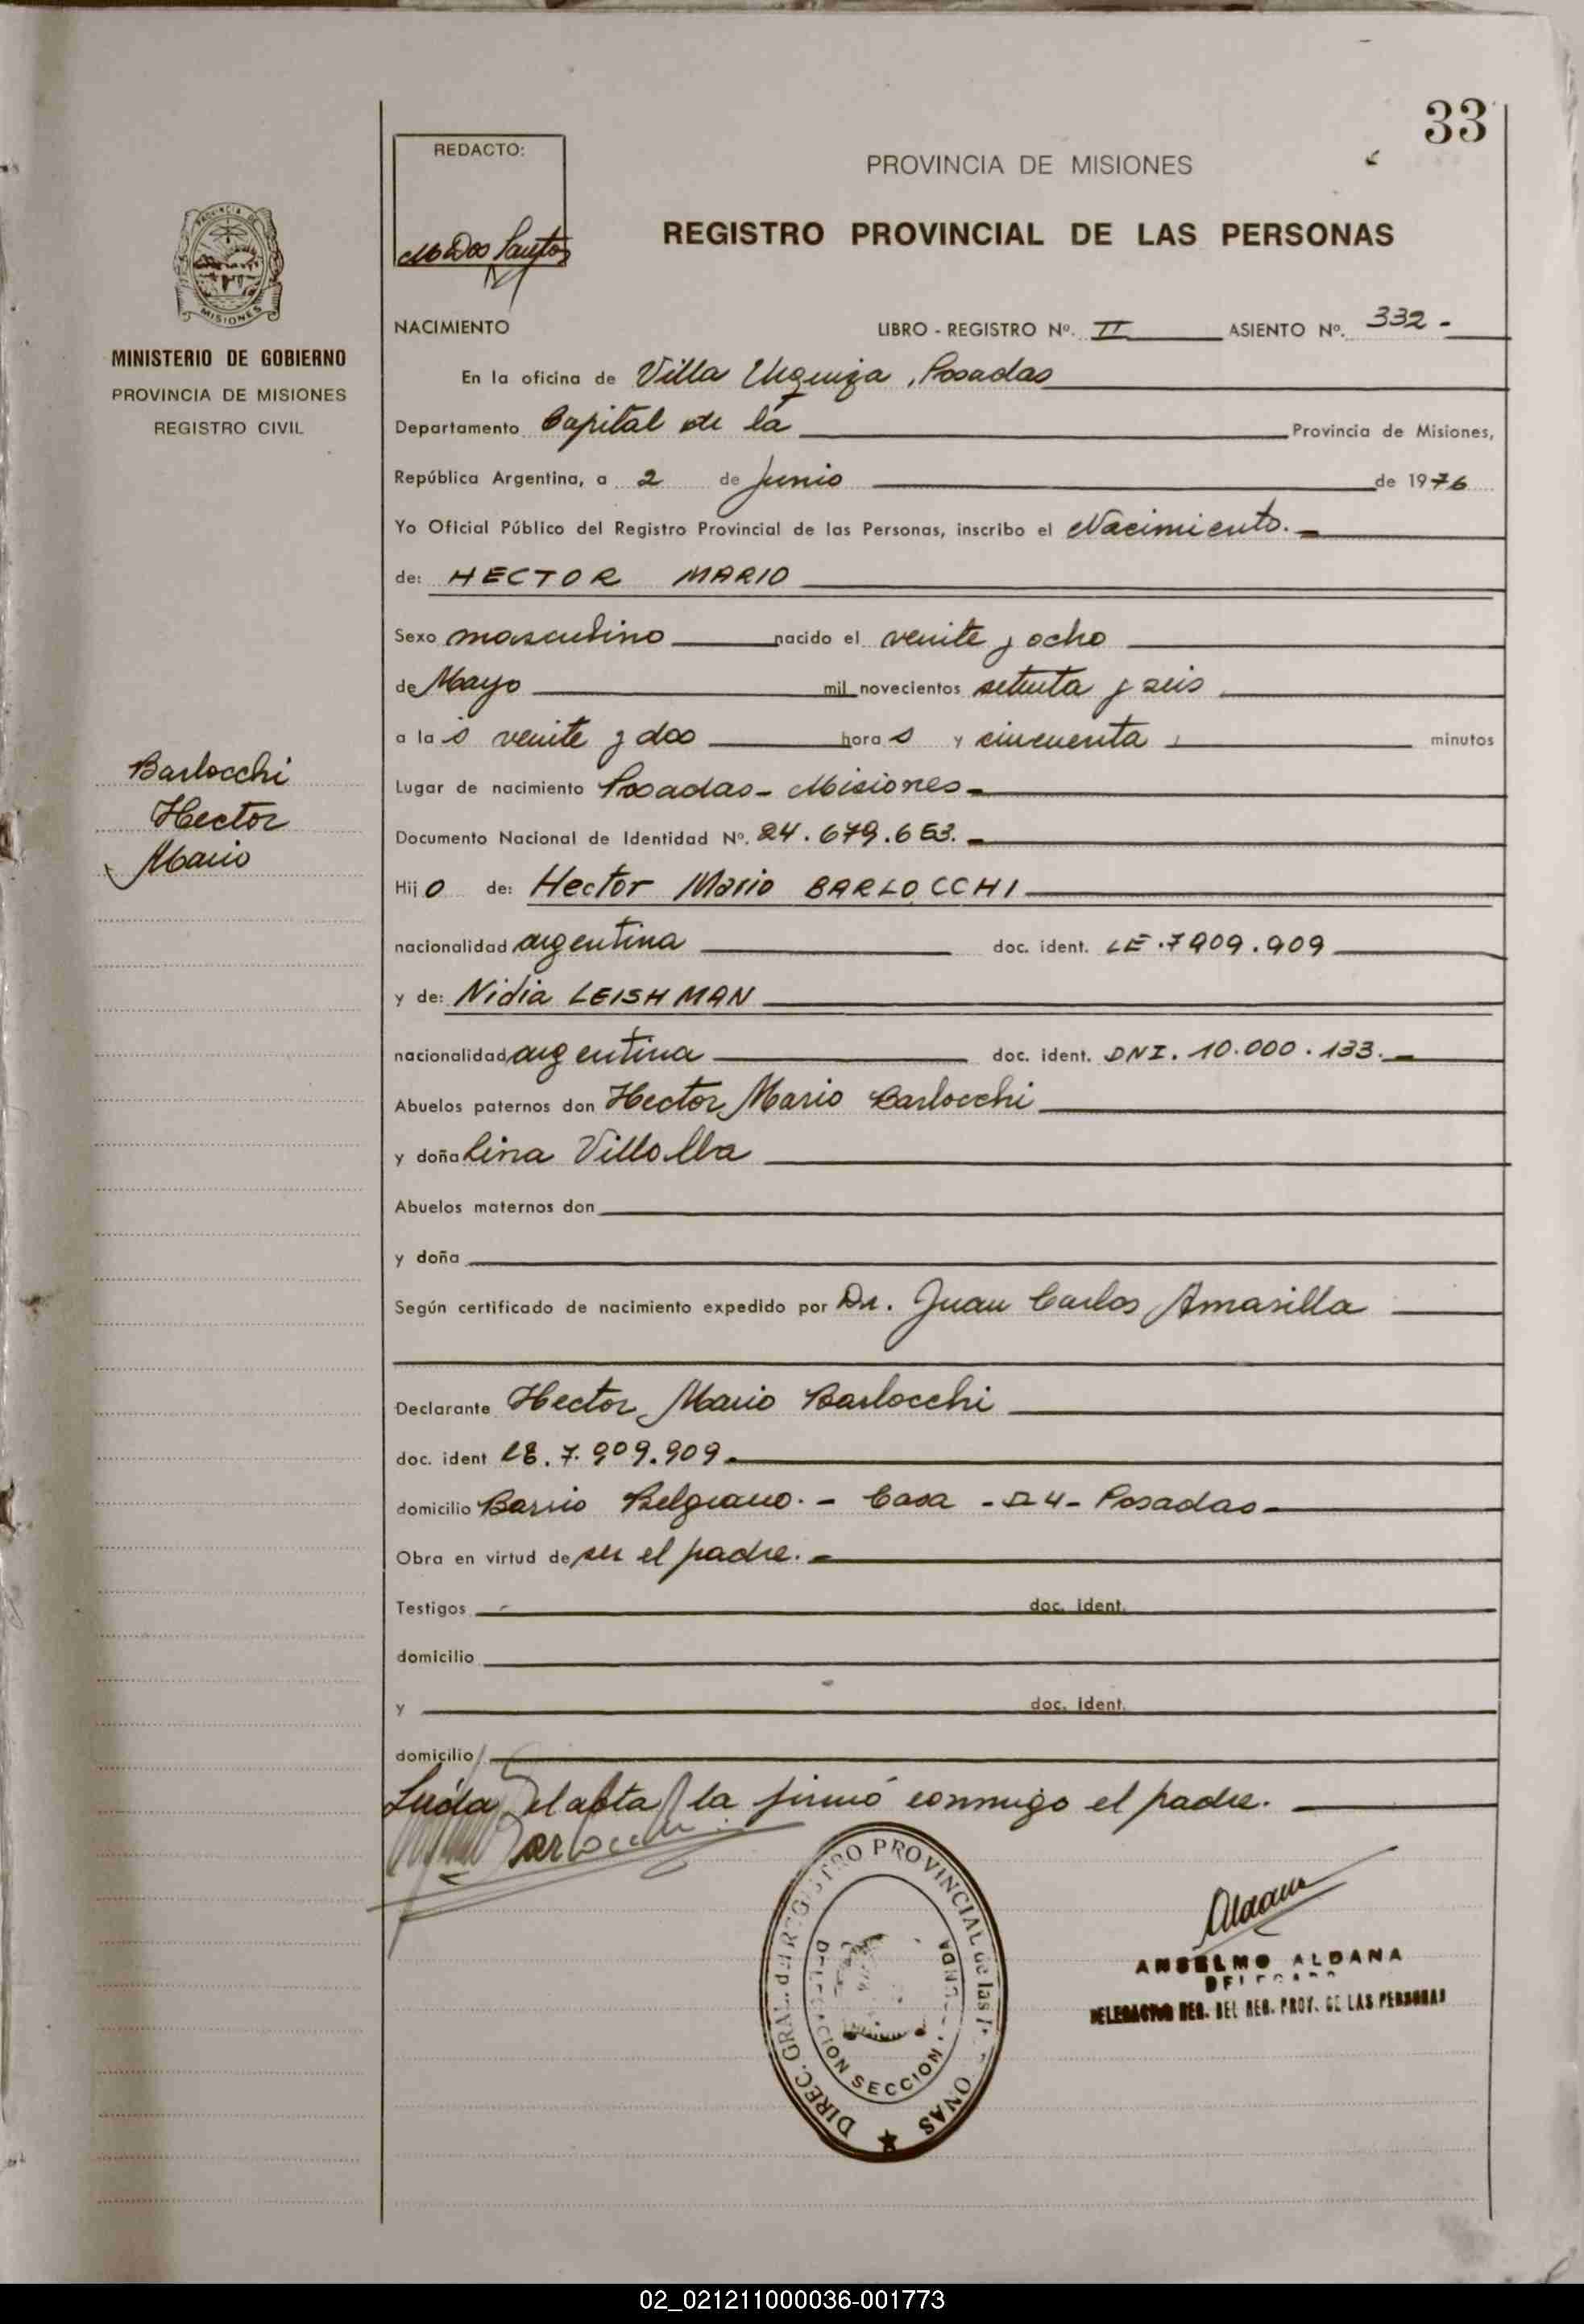 33
REDACTO:
M Dos Santos
PROVINCIA DE MISIONES
REGISTRO PROVINCIAL DE LAS PERSONAS
PROVINCIA DE
MISIONES
MINISTERIO DE GOBIERNO
PROVINCIA DE MISIONES
REGISTRO CIVIL
Barlocchi
Hector
Mario
NACIMIENTO LIBRO - REGISTRO Nº. II ASIENTO Nº. 332 -
En la oficina de Villa Urquiza, Posadas
Departamento Capital de la Provincia de Misiones,
República Argentina, a 2 de Junio de 1976
Yo Oficial Público del Registro Provincial de las Personas, inscribo el Nacimiento. -
de: HECTOR MARIO
Sexo masculino nacido el veinte y ocho
de Mayo mil novecientos setenta y seis
a las veinte y dos horas y cincuenta minutos
Lugar de nacimiento Posadas - Misiones -
Documento Nacional de Identidad Nº. 24.679.653. -
Hijo de: Hector Mario BARLOCCHI
nacionalidad argentina doc. ident. LE.7909.909
y de: Nidia LEISHMAN
nacionalidad argentina doc. ident. DNI. 10.000.133. -
Abuelos paternos don Hector Mario Barlocchi
y doña Lina Villalba
Abuelos maternos don
y doña
Según certificado de nacimiento expedido por Dr. Juan Carlos Amarilla
Declarante Hector Mario Barlocchi
doc. ident LE. 7.909.909 -
domicilio Barrio Belgrano. - Casa - 24 - Posadas -
Obra en virtud de ser el padre. -
Testigos doc. ident.
domicilio
y doc. ident.
domicilio
Leída el acta la firmó conmigo el padre.
Barlocchi
DIREC. GRAL. del REGISTRO PROVINCIAL de las PERSONAS
DELEGACION SECCION
Aldana
ANSELMO ALDANA
DELEGADO
DELEGACION REG. DEL REG. PROV. DE LAS PERSONAS
02_021211000036-001773